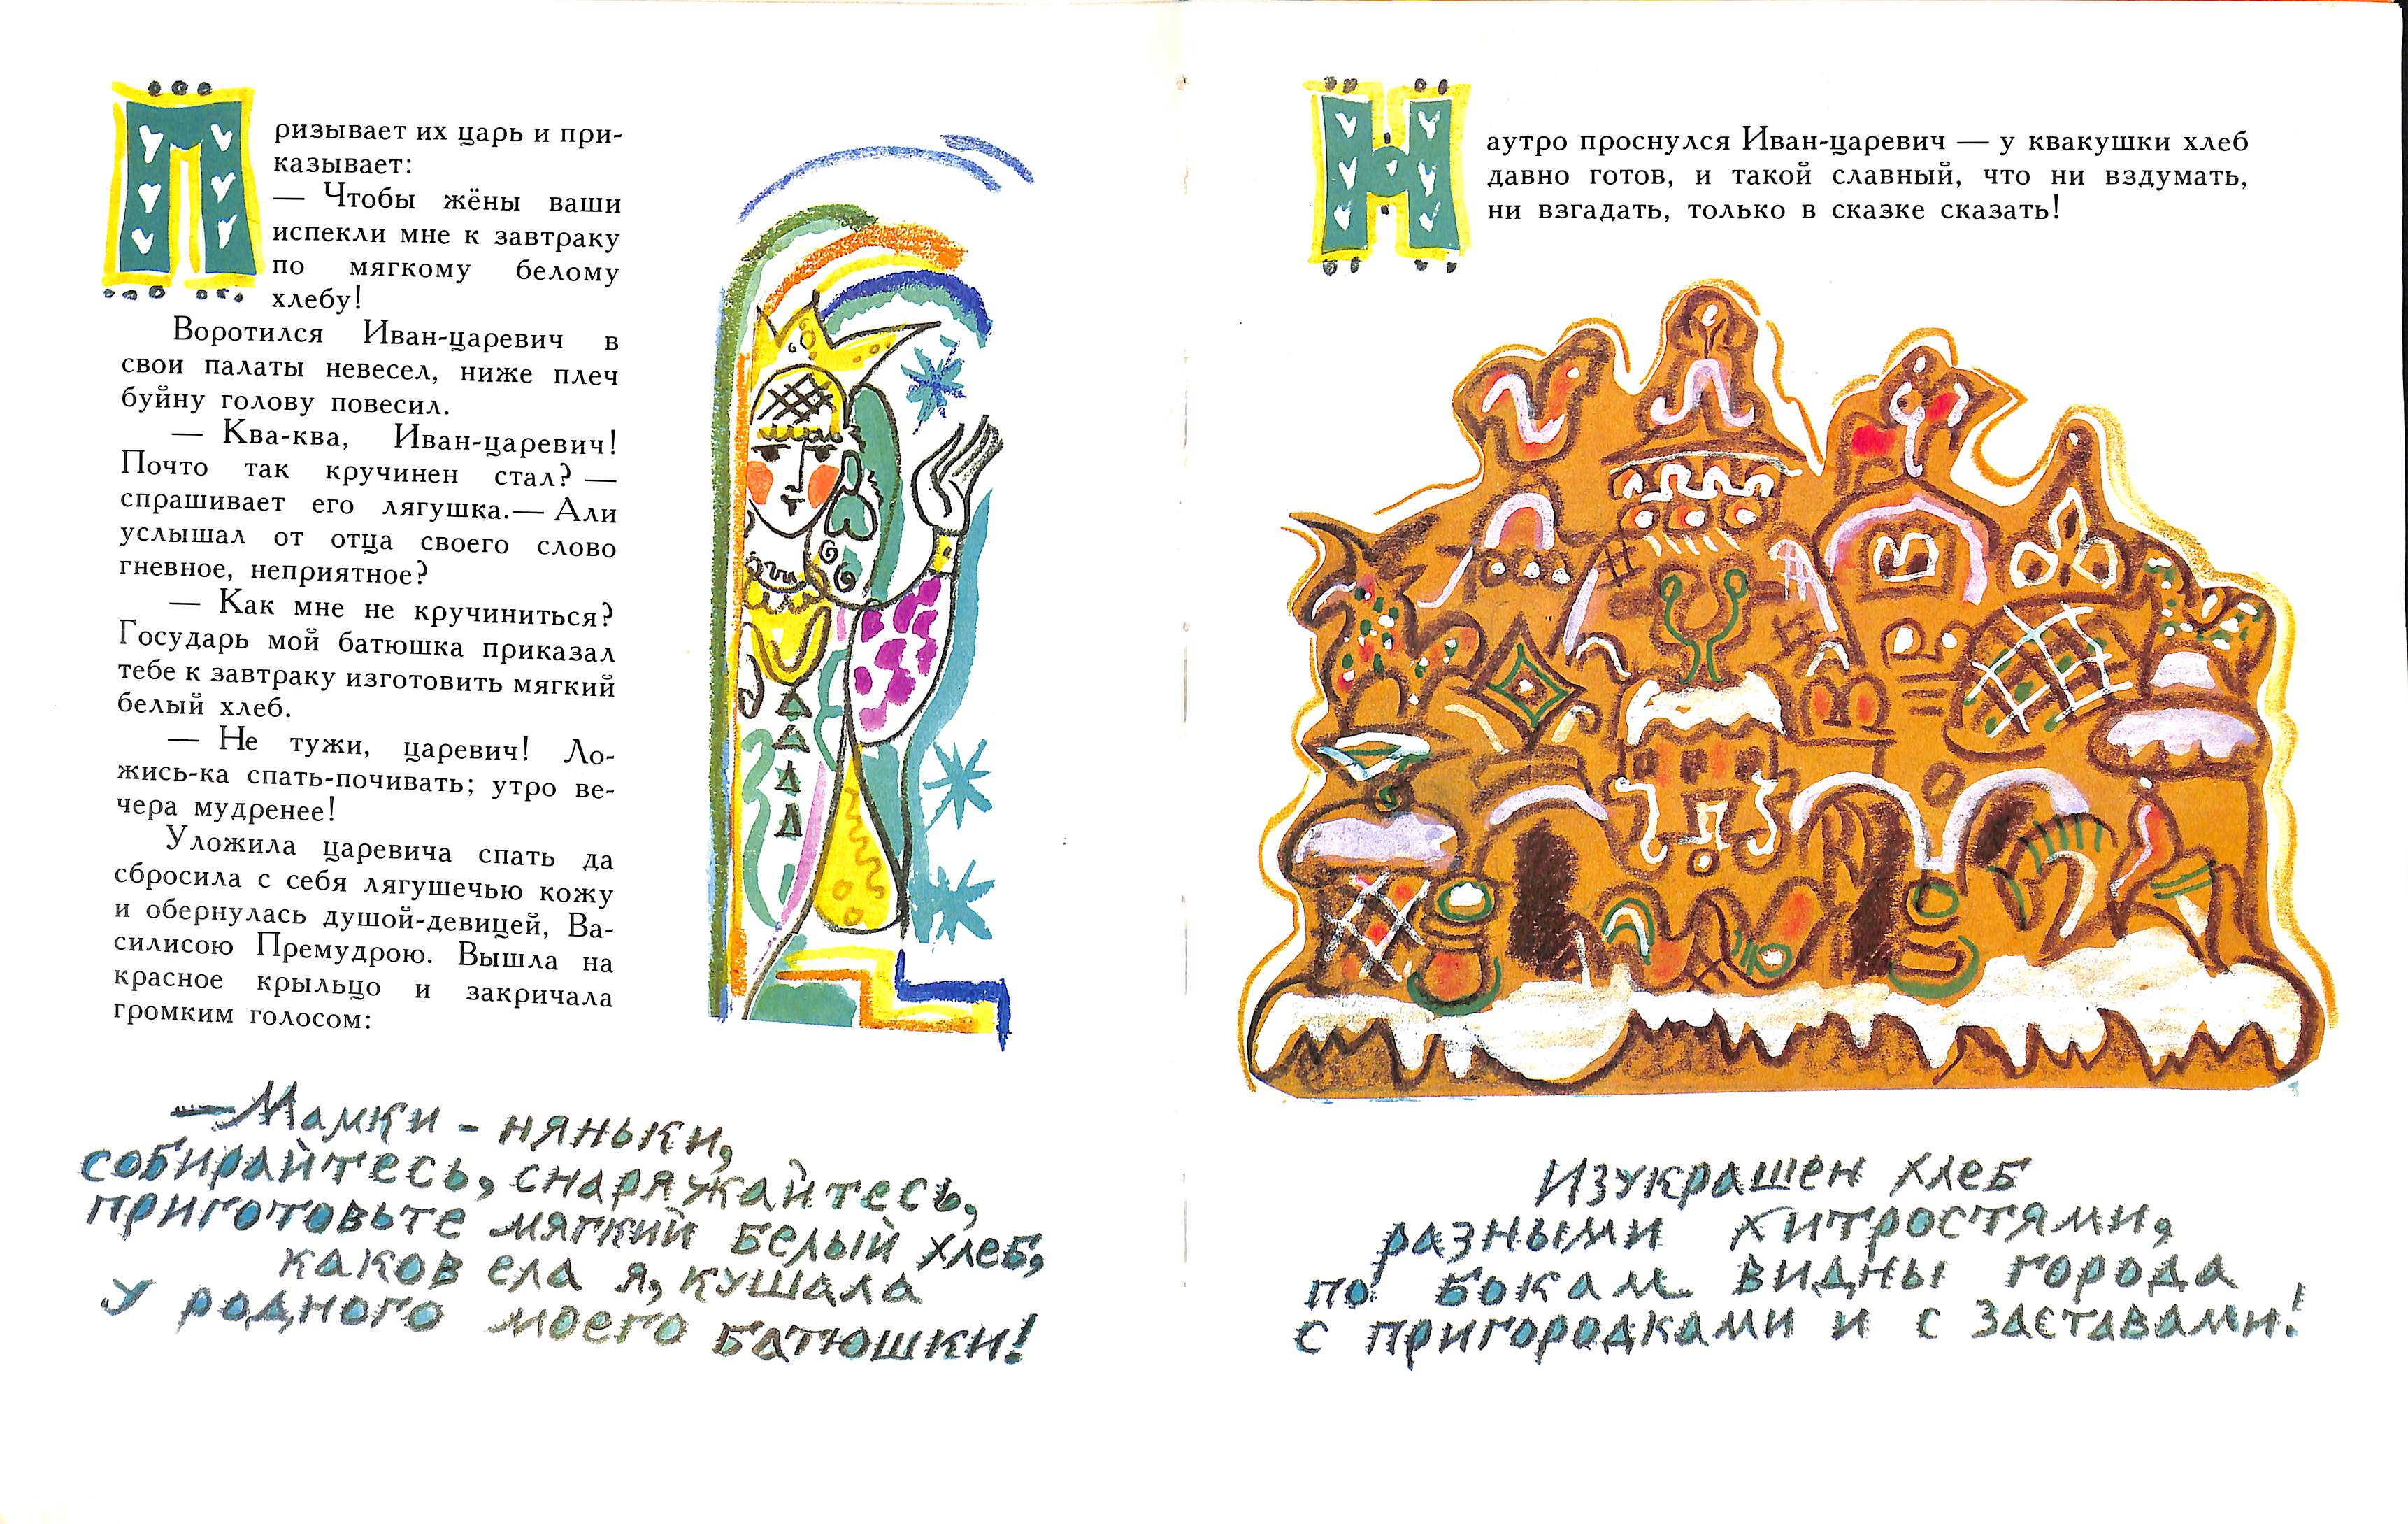 Призывает их царь и при-
казывает:
— Чтобы жёны ваши
испекли мне к завтраку
по мягкому белому
хлебу!
Воротился Иван-царевич в
свои палаты невесел, ниже плеч
буйну голову повесил.
— Ква-ква, Иван-царевич!
Почто так кручинен стал? —
спрашивает его лягушка.— Али
услышал от отца своего слово
гневное, неприятное?
— Как мне не кручиниться?
Государь мой батюшка приказал
тебе к завтраку изготовить мягкий
белый хлеб.
— Не тужи, царевич! Ло-
жись-ка спать-почивать; утро ве-
чера мудренее!
Уложила царевича спать да
сбросила с себя лягушечью кожу
и обернулась душой-девицей, Ва-
силисою Премудрою. Вышла на
красное крыльцо и закричала
громким голосом:
— Мамки - няньки,
собирайтесь, снаряжайтесь,
приготовьте мягкий белый хлеб,
каков ела я, кушала
у родного моего батюшки!
Наутро проснулся Иван-царевич — у квакушки хлеб
давно готов, и такой славный, что ни вздумать,
ни взгадать, только в сказке сказать!
Изукрашен хлеб
разными хитростями,
по бокам видны города
с пригородками и с заставами!